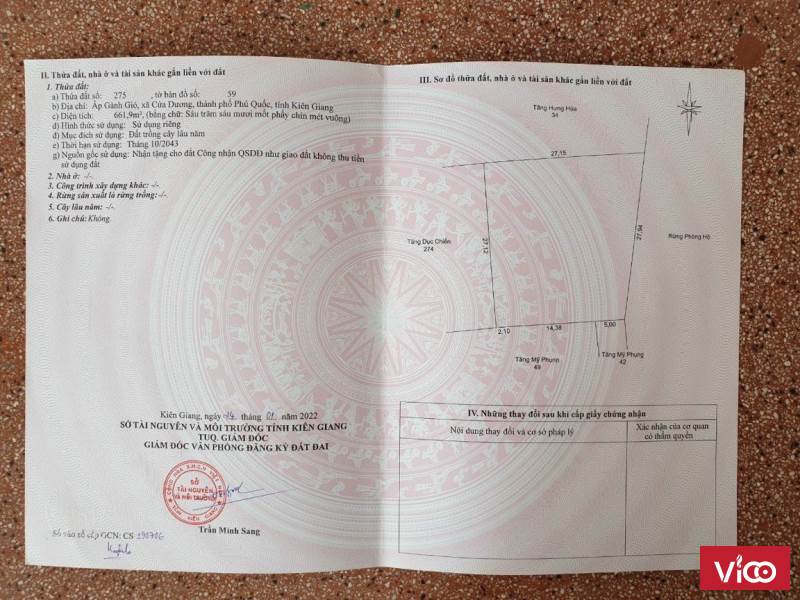 II. Thửa đất, nhà ở và tài sản khác gắn liền với đất
1. Thửa đất:
a) Thửa đất số: 275, tờ bản đồ số: 59
b) Địa chỉ: Ấp Gành Gió, xã Cửa Dương, thành phố Phú Quốc, tỉnh Kiên Giang
c) Diện tích: 661,9m², (bằng chữ: Sáu trăm sáu mươi mốt phẩy chín mét vuông)
d) Hình thức sử dụng: Sử dụng riêng
đ) Mục đích sử dụng: Đất trồng cây lâu năm
e) Thời hạn sử dụng: Tháng 10/2043
g) Nguồn gốc sử dụng: Nhận tặng cho đất Công nhận QSDĐ như giao đất không thu tiền
sử dụng đất
2. Nhà ở: -/-
3. Công trình xây dựng khác: -/-
4. Rừng sản xuất là rừng trồng:-/-
5. Cây lâu năm: -/-
6. Ghi chú: Không.
Kiên Giang, ngày 14 tháng 01 năm 2022
SỞ TÀI NGUYÊN VÀ MÔI TRƯỜNG TỈNH KIÊN GIANG
TUQ. GIÁM ĐỐC
GIÁM ĐỐC VĂN PHÒNG ĐĂNG KÝ ĐẤT ĐAI
SỞ
TÀI NGUYÊN
VÀ MÔI TRƯỜNG
Trần Minh Sang
Số vào sổ cấp GCN: CS
III. Sơ đồ thửa đất, nhà ở và tài sản khác gắn liền với đất
Tăng Hưng Hòa
34
27,15
Tăng Dục Chiến
274
27,12
27,94
Rừng Phòng Hộ
2,10
14,38
5,00
Tăng Mỹ Phụng
49
Tăng Mỹ Phụng
42
IV. Những thay đổi sau khi cấp giấy chứng nhận
Nội dung thay đổi và cơ sở pháp lý
Xác nhận của cơ quan
có thẩm quyền
Vico